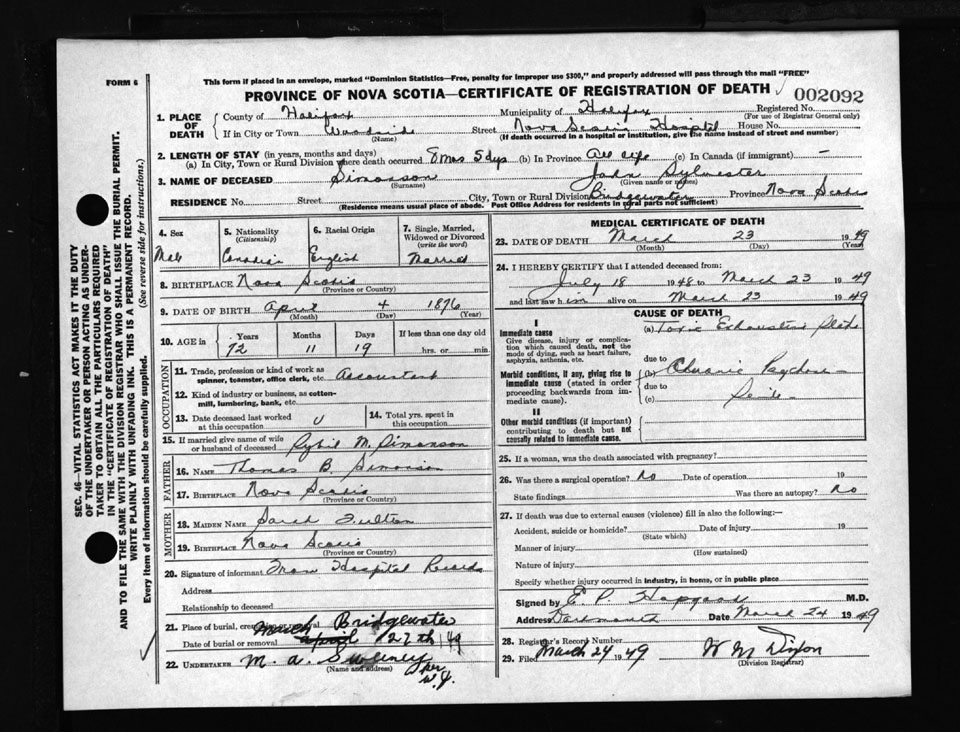 FORM 6
This form if placed in an envelope, marked "Dominion Statistics—Free, penalty for improper use $300," and properly addressed will pass through the mail "FREE"
PROVINCE OF NOVA SCOTIA—CERTIFICATE OF REGISTRATION OF DEATH 002092
1. PLACE OF DEATH
County of Halifax Municipality of Halifax Registered No.
(For use of Registrar General only)
If in City or Town Woodside Street Nova Scotia Hospital House No.
(Name) (If death occurred in a hospital or institution, give the name instead of street and number)
2. LENGTH OF STAY (in years, months and days)
(a) In City, Town or Rural Division where death occurred 8 mos 5 dys (b) In Province All life (c) In Canada (if immigrant) —
3. NAME OF DECEASED Simonson John Sylvester
(Surname) (Given name or names)
RESIDENCE No. Street City, Town or Rural Division Bridgewater Province Nova Scotia
(Residence means usual place of abode. Post Office Address for residents in rural parts not sufficient)
SEC. 46—VITAL STATISTICS ACT MAKES IT THE DUTY
OF THE UNDERTAKER OR PERSON ACTING AS UNDER-
TAKER TO OBTAIN ALL THE PARTICULARS REQUIRED
IN THE "CERTIFICATE OF REGISTRATION OF DEATH"
AND TO FILE THE SAME WITH THE DIVISION REGISTRAR WHO SHALL ISSUE THE BURIAL PERMIT.
WRITE PLAINLY WITH UNFADING INK. THIS IS A PERMANENT RECORD.
Every item of information should be carefully supplied. (See reverse side for instructions.)
4. Sex
Male
5. Nationality
(Citizenship)
Canadian
6. Racial Origin
English
7. Single, Married,
Widowed or Divorced
(write the word)
Married
8. BIRTHPLACE Nova Scotia
(Province or Country)
9. DATE OF BIRTH April 4 1876
(Month) (Day) (Year)
10. AGE in Years Months Days If less than one day old
72 11 19 hrs. or min.
OCCUPATION
11. Trade, profession or kind of work as
spinner, teamster, office clerk, etc. Accountant
12. Kind of industry or business, as cotton-
mill, lumbering, bank, etc.
13. Date deceased last worked
at this occupation U
14. Total yrs. spent in
this occupation
15. If married give name of wife
or husband of deceased Sybil M. Simonson
FATHER
16. NAME Thomas B. Simonson
17. BIRTHPLACE Nova Scotia
(Province or Country)
MOTHER
18. MAIDEN NAME Sarah Fulton
19. BIRTHPLACE Nova Scotia
(Province or Country)
20. Signature of informant From Hospital Records
Address
Relationship to deceased
21. Place of burial, cremation or removal Bridgewater
Date of burial or removal March April 27th 1949
22. UNDERTAKER M. A. Sweeney
(Name and address) per W.J.
MEDICAL CERTIFICATE OF DEATH
23. DATE OF DEATH March 23 1949
(Month) (Day) (Year)
24. I HEREBY CERTIFY that I attended deceased from:
July 18 1948 to March 23 1949
and last saw him alive on March 23 1949
CAUSE OF DEATH
I
Immediate cause
Give disease, injury or complica-
tion which caused death, not the
mode of dying, such as heart failure,
asphyxia, asthenia, etc.
(a) Toxic Exhaustive State
due to
Morbid conditions, if any, giving rise to
immediate cause (stated in order
proceeding backwards from im-
mediate cause).
(b) Chronic Psychosis
due to
(c) Senile
II
Other morbid conditions (if important)
contributing to death but not
causally related to immediate cause.
25. If a woman, was the death associated with pregnancy?
26. Was there a surgical operation? No Date of operation 19
State findings Was there an autopsy? No
27. If death was due to external causes (violence) fill in also the following:—
Accident, suicide or homicide? Date of injury 19
(State which)
Manner of injury
(How sustained)
Nature of injury
Specify whether injury occurred in industry, in home, or in public place
Signed by E. P. Hapgood M.D.
Address Dartmouth Date March 24 1949
28. Registrar's Record Number
29. Filed March 24 1949 W M Dixon
(Division Registrar)